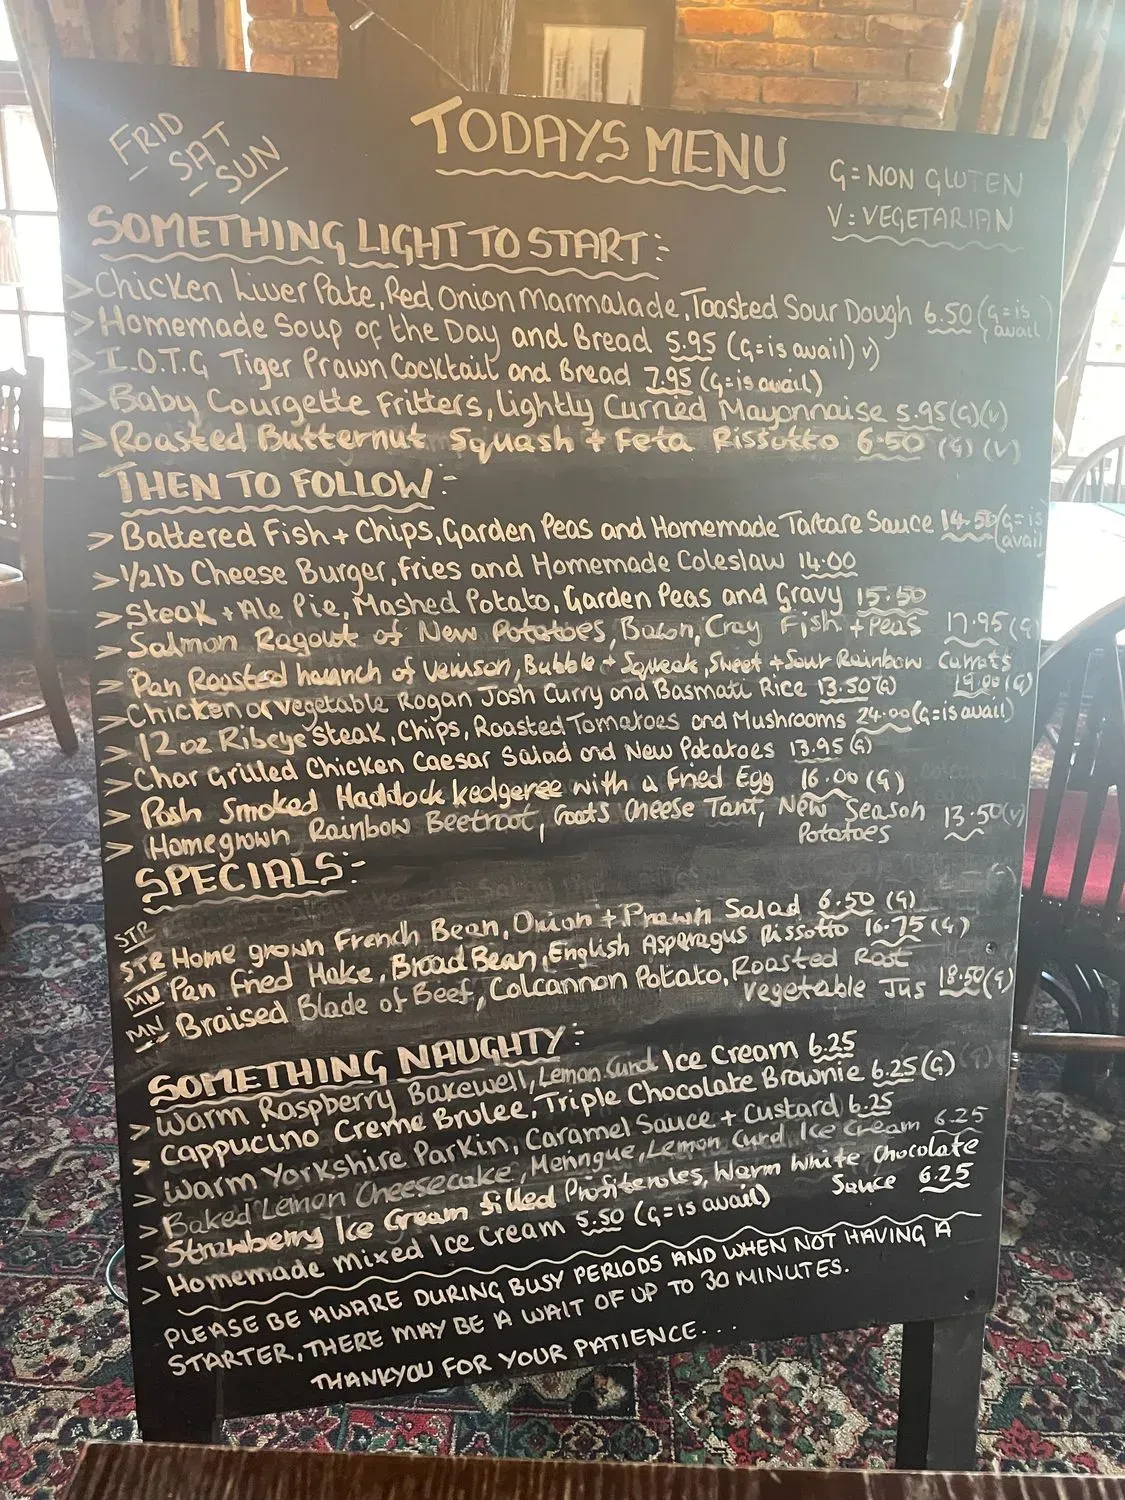 FRID
SAT
SUN
TODAYS MENU
G = NON GLUTEN
V = VEGETARIAN
SOMETHING LIGHT TO START:-
> Chicken Liver Pate, Red Onion Marmalade, Toasted Sour Dough 6.50 (G = is avail)
> Homemade Soup of the Day and Bread 5.95 (G = is avail) V)
> I.O.T.G Tiger Prawn Cocktail and Bread 7.95 (G = is avail)
> Baby Courgette Fritters, Lightly Curried Mayonnaise 5.95 (G) (V)
> Roasted Butternut Squash + Feta Rissotto 6.50 (G) (V)
THEN TO FOLLOW:-
> Battered Fish + Chips, Garden Peas and Homemade Tartare Sauce 14.50 (G = is avail
> 1/2lb Cheese Burger, Fries and Homemade Coleslaw 14.00
> Steak + Ale Pie, Mashed Potato, Garden Peas and Gravy 15.50
> Salmon Ragout of New Potatoes, Bacon, Cray Fish + Peas 17.95 (G
> Pan Roasted haunch of Venison, Bubble + Squeak, Sweet + Sour Rainbow Carrots
19.00 (G)
> Chicken or Vegetable Rogan Josh Curry and Basmati Rice 13.50 (G)
> 12oz Ribeye Steak, Chips, Roasted Tomatoes and Mushrooms 24.00 (G = is avail)
> Char Grilled Chicken Caesar Salad and New Potatoes 13.95 (G)
> Posh Smoked Haddock kedgeree with a Fried Egg 16.00 (G)
> Homegrown Rainbow Beetroot, Goats Cheese Tart, New Season 13.50 (V)
Potatoes
SPECIALS:-
STR
STR Home grown French Bean, Onion + Prawn Salad 6.50 (G)
MN Pan Fried Hake, Broad Bean, English Asparagus Rissotto 16.75 (G)
MN Braised Blade of Beef, Colcannon Potato, Roasted Root
Vegetable Jus 18.50 (G)
SOMETHING NAUGHTY:-
> Warm Raspberry Bakewell, Lemon Curd Ice Cream 6.25
> Cappucino Creme Brulee, Triple Chocolate Brownie 6.25 (G)
> Warm Yorkshire Parkin, Caramel Sauce + Custard 6.25
> Baked Lemon Cheesecake, Meringue, Lemon Curd Ice Cream 6.25
> Strawberry Ice Cream filled Profiteroles, Warm White Chocolate
Sauce 6.25
> Homemade Mixed Ice Cream 5.50 (G = is avail)
PLEASE BE AWARE DURING BUSY PERIODS AND WHEN NOT HAVING A
STARTER, THERE MAY BE A WAIT OF UP TO 30 MINUTES.
THANKYOU FOR YOUR PATIENCE...